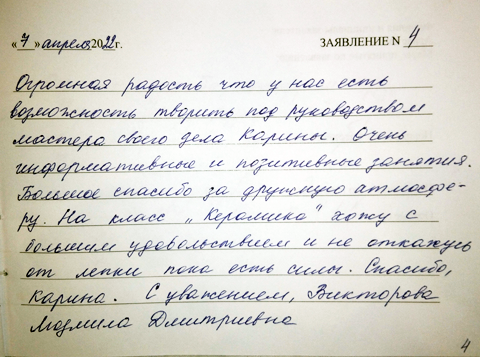 « 7 » апреля 2022 г. ЗАЯВЛЕНИЕ N 4
Огромная радость что у нас есть
возможность творить под руководством
мастера своего дела Карины. Очень
информативные и позитивные занятия.
Большое спасибо за дружную атмосфе-
ру. На класс „Керамика" хожу с
большим удовольствием и не откажусь
от лепки пока есть силы. Спасибо,
Карина. С уважением, Викторова
Людмила Дмитриевна
4